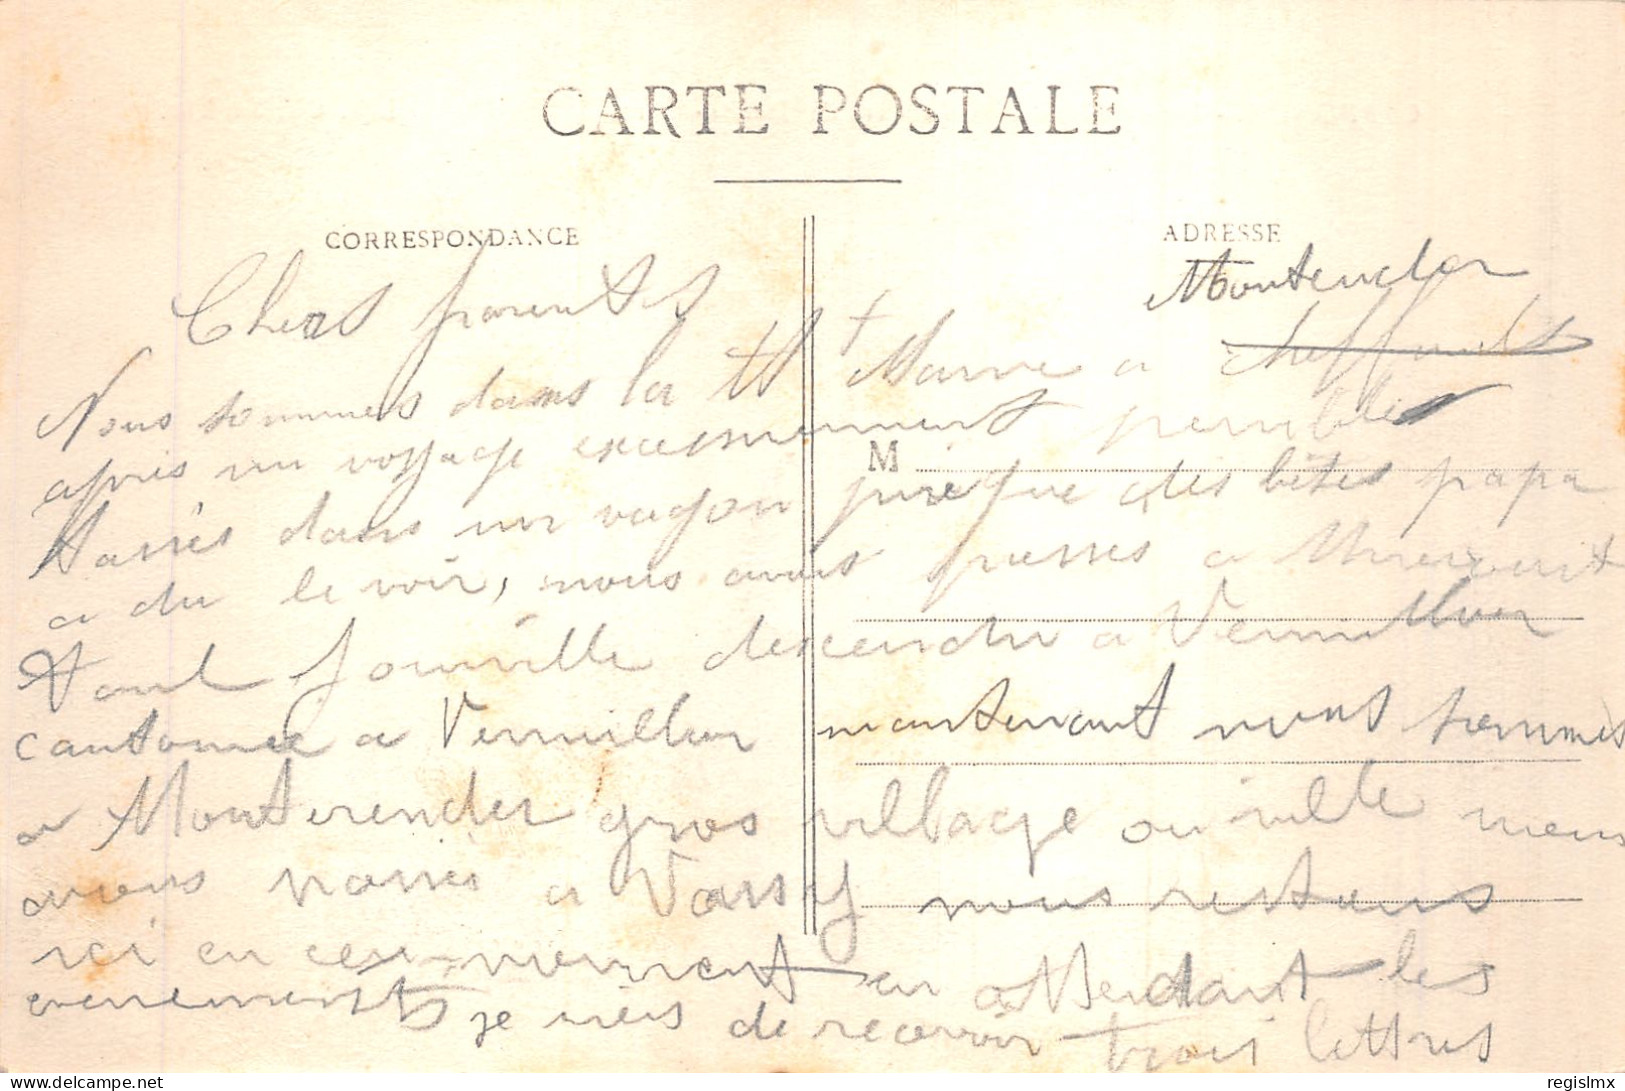 CARTE POSTALE
CORRESPONDANCE
ADRESSE
Montender
Chers parents
Nous sommes dans la Ht Marne a
après un voyage excessivement penible
M
tassés dans un vagon presque des bêtes papa
a du le voir, nous avons passes a
Joinville descendu a Vernillon
cantonne a Vernillon maintenant nous sommes
a Monterender gros village ou ville nous
avons passés a Vassy nous restons
ici en ce moment en attendant les
evenements je viens de recevoir trois lettres
delcampe.net
regislmx